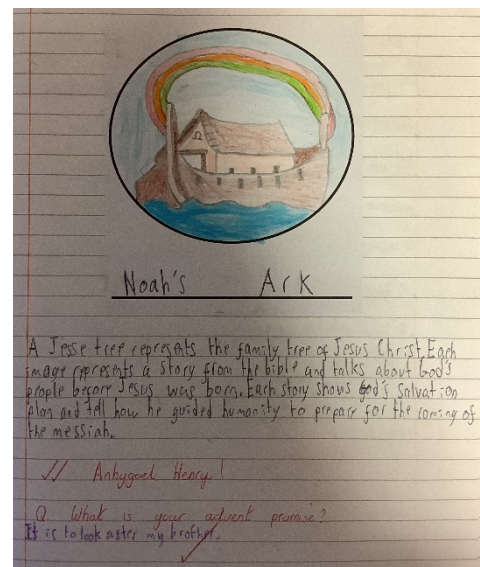 Noah's Ark
A Jesse tree represents the family tree of Jesus Christ. Each
image represents a story from the bible and talks about God's
people before Jesus was born. Each story shows God's salvation
plan and tell how he guided humanity to prepare for the coming of
the messiah.
Henry!
Q. What is your advent promise?
It is to look after my brother.